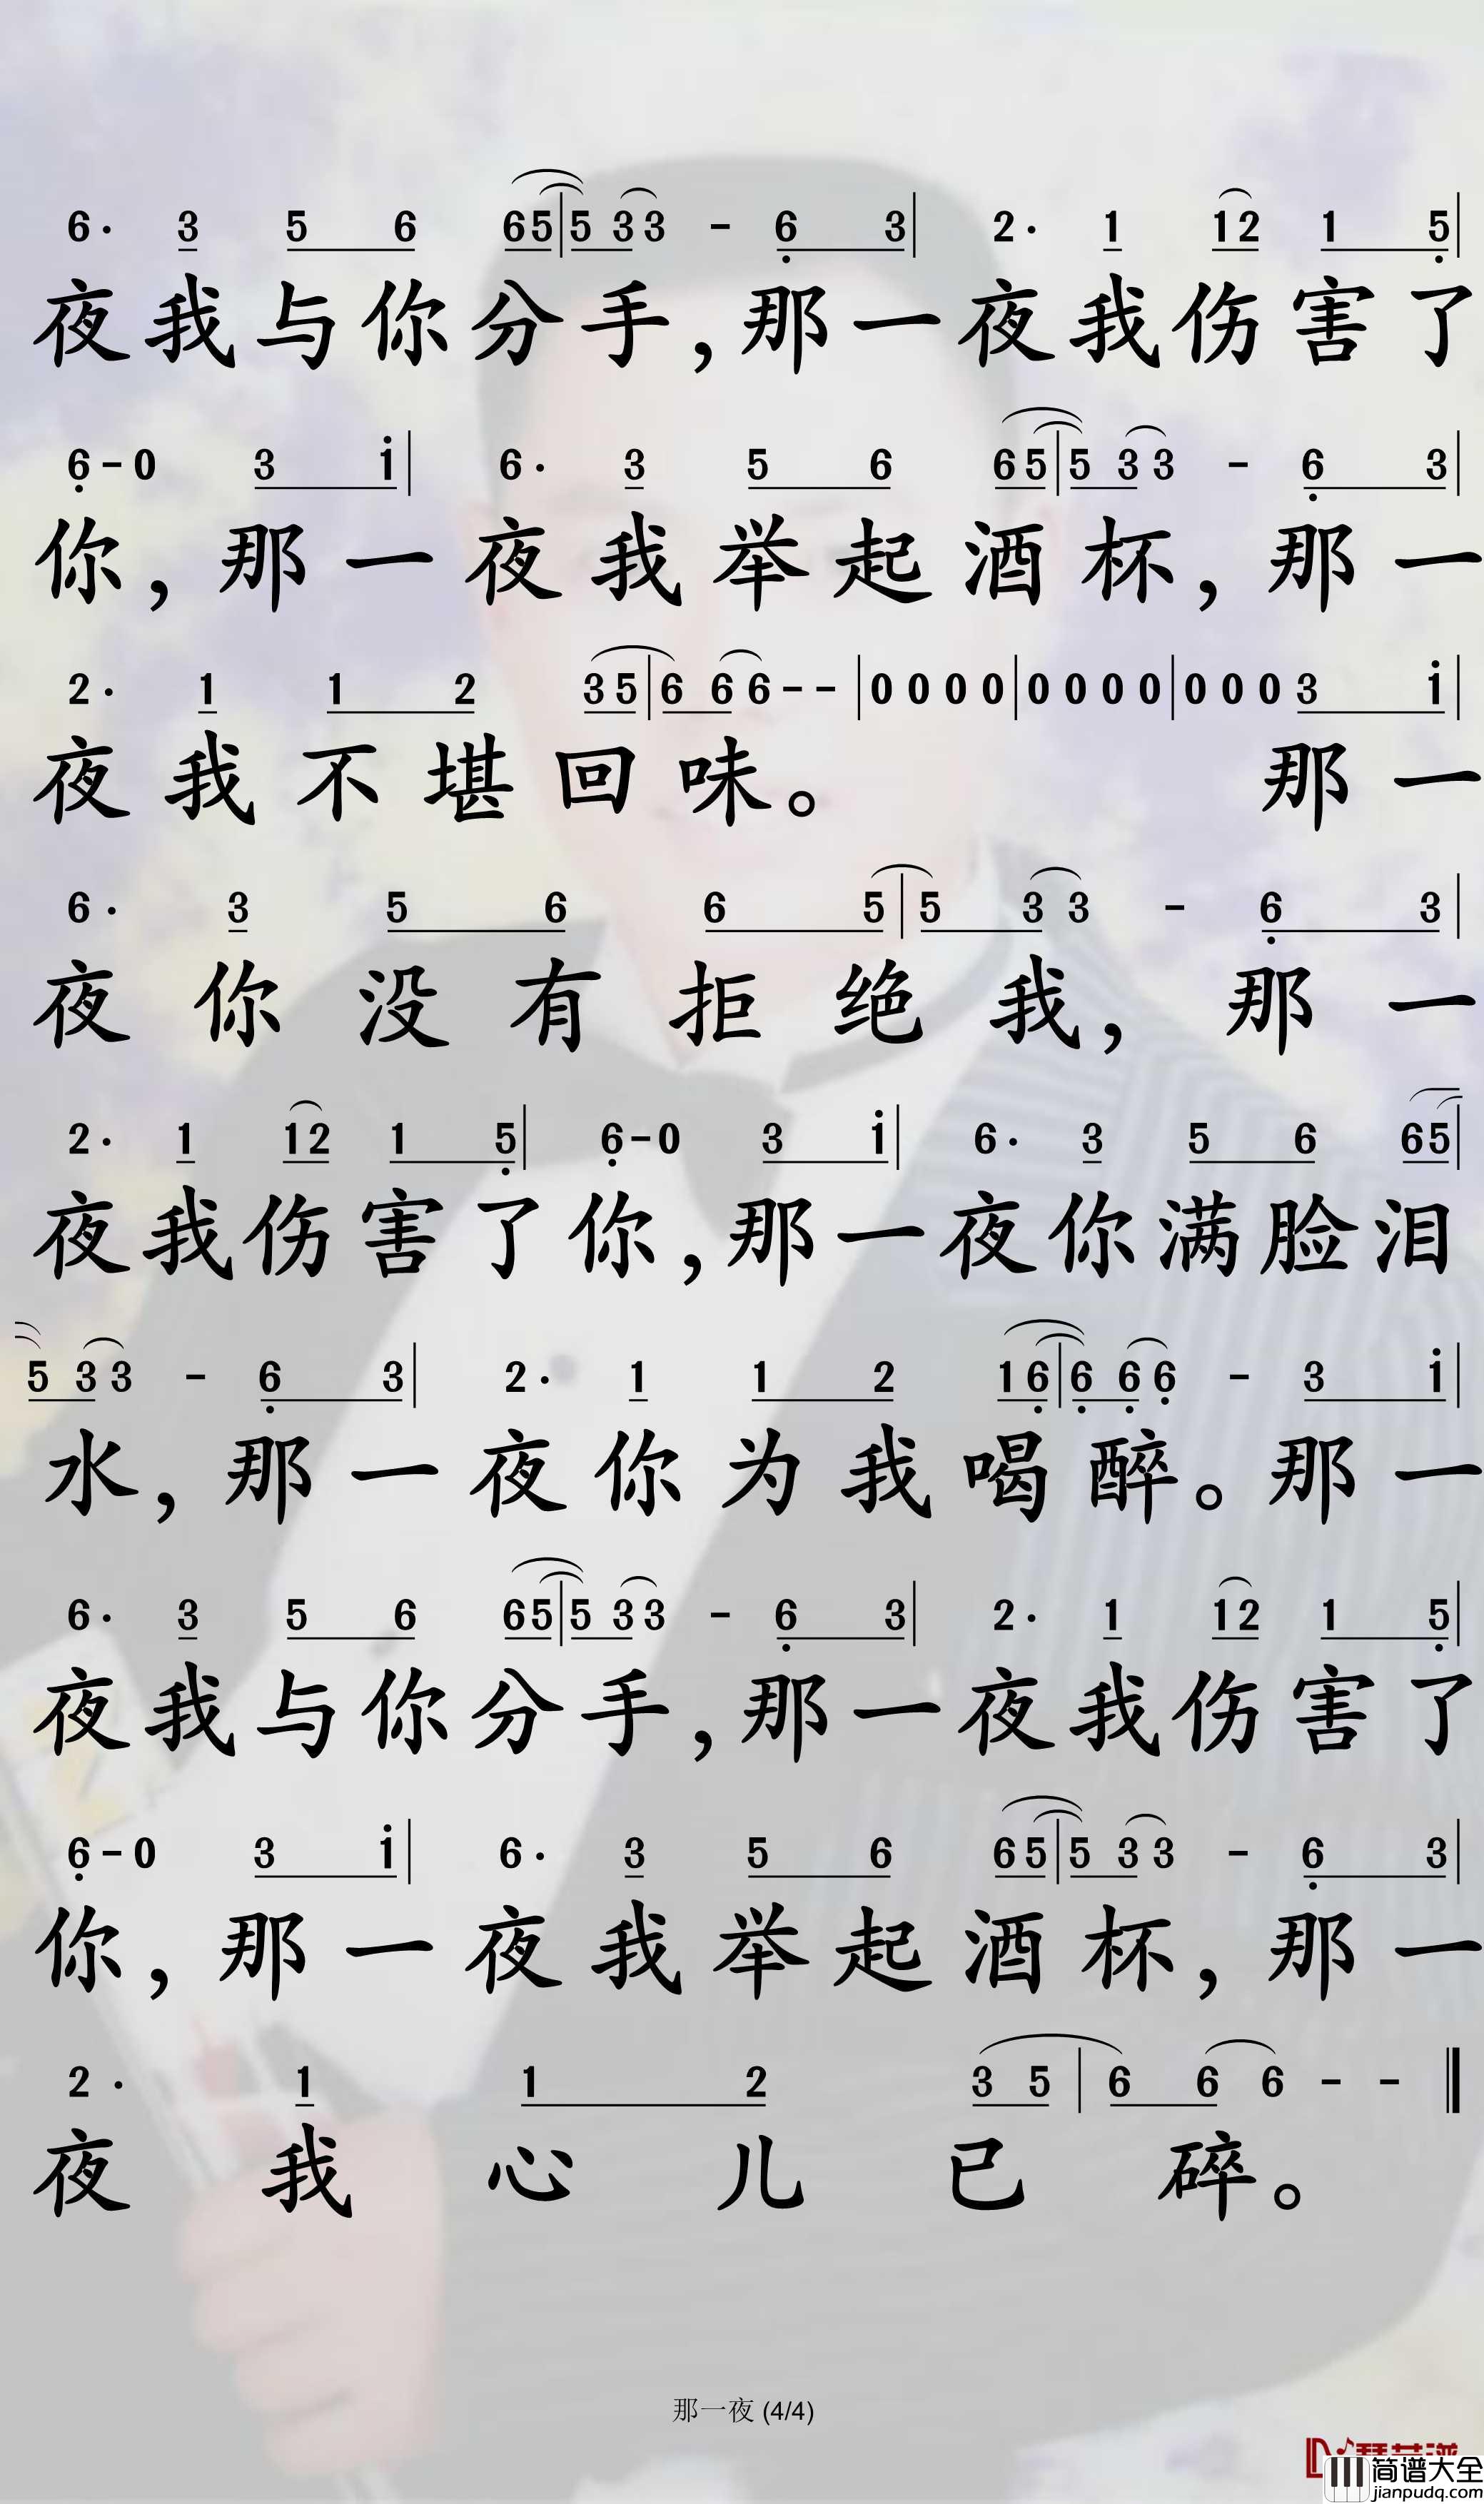 6· 3 5 6 65|5 33 - 6 3| 2· 1 12 1 5|
夜我与你分手,那一夜我伤害了
6-0 3 i| 6· 3 5 6 65|5 33 - 6 3|
你,那一夜我举起酒杯,那一
2· 1 1 2 35|6 66-- |0000|0000|0003 i|
夜我不堪回味。 那一
6· 3 5 6 6 5|5 33 - 6 3|
夜你没有拒绝我,那一
2· 1 12 1 5| 6-0 3 i| 6· 3 5 6 65|
夜我伤害了你,那一夜你满脸泪
5 33 - 6 3| 2· 1 1 2 16|6 66 - 3 i|
水,那一夜你为我喝醉。那一
6· 3 5 6 65|5 33 - 6 3| 2· 1 12 1 5|
夜我与你分手,那一夜我伤害了
6-0 3 i| 6· 3 5 6 65|5 33 - 6 3|
你,那一夜我举起酒杯,那一
2· 1 1 2 3 5 | 6 6 6 - - ‖
夜我心儿已碎。
那一夜 (4/4)
简谱大全
jianpudq.com